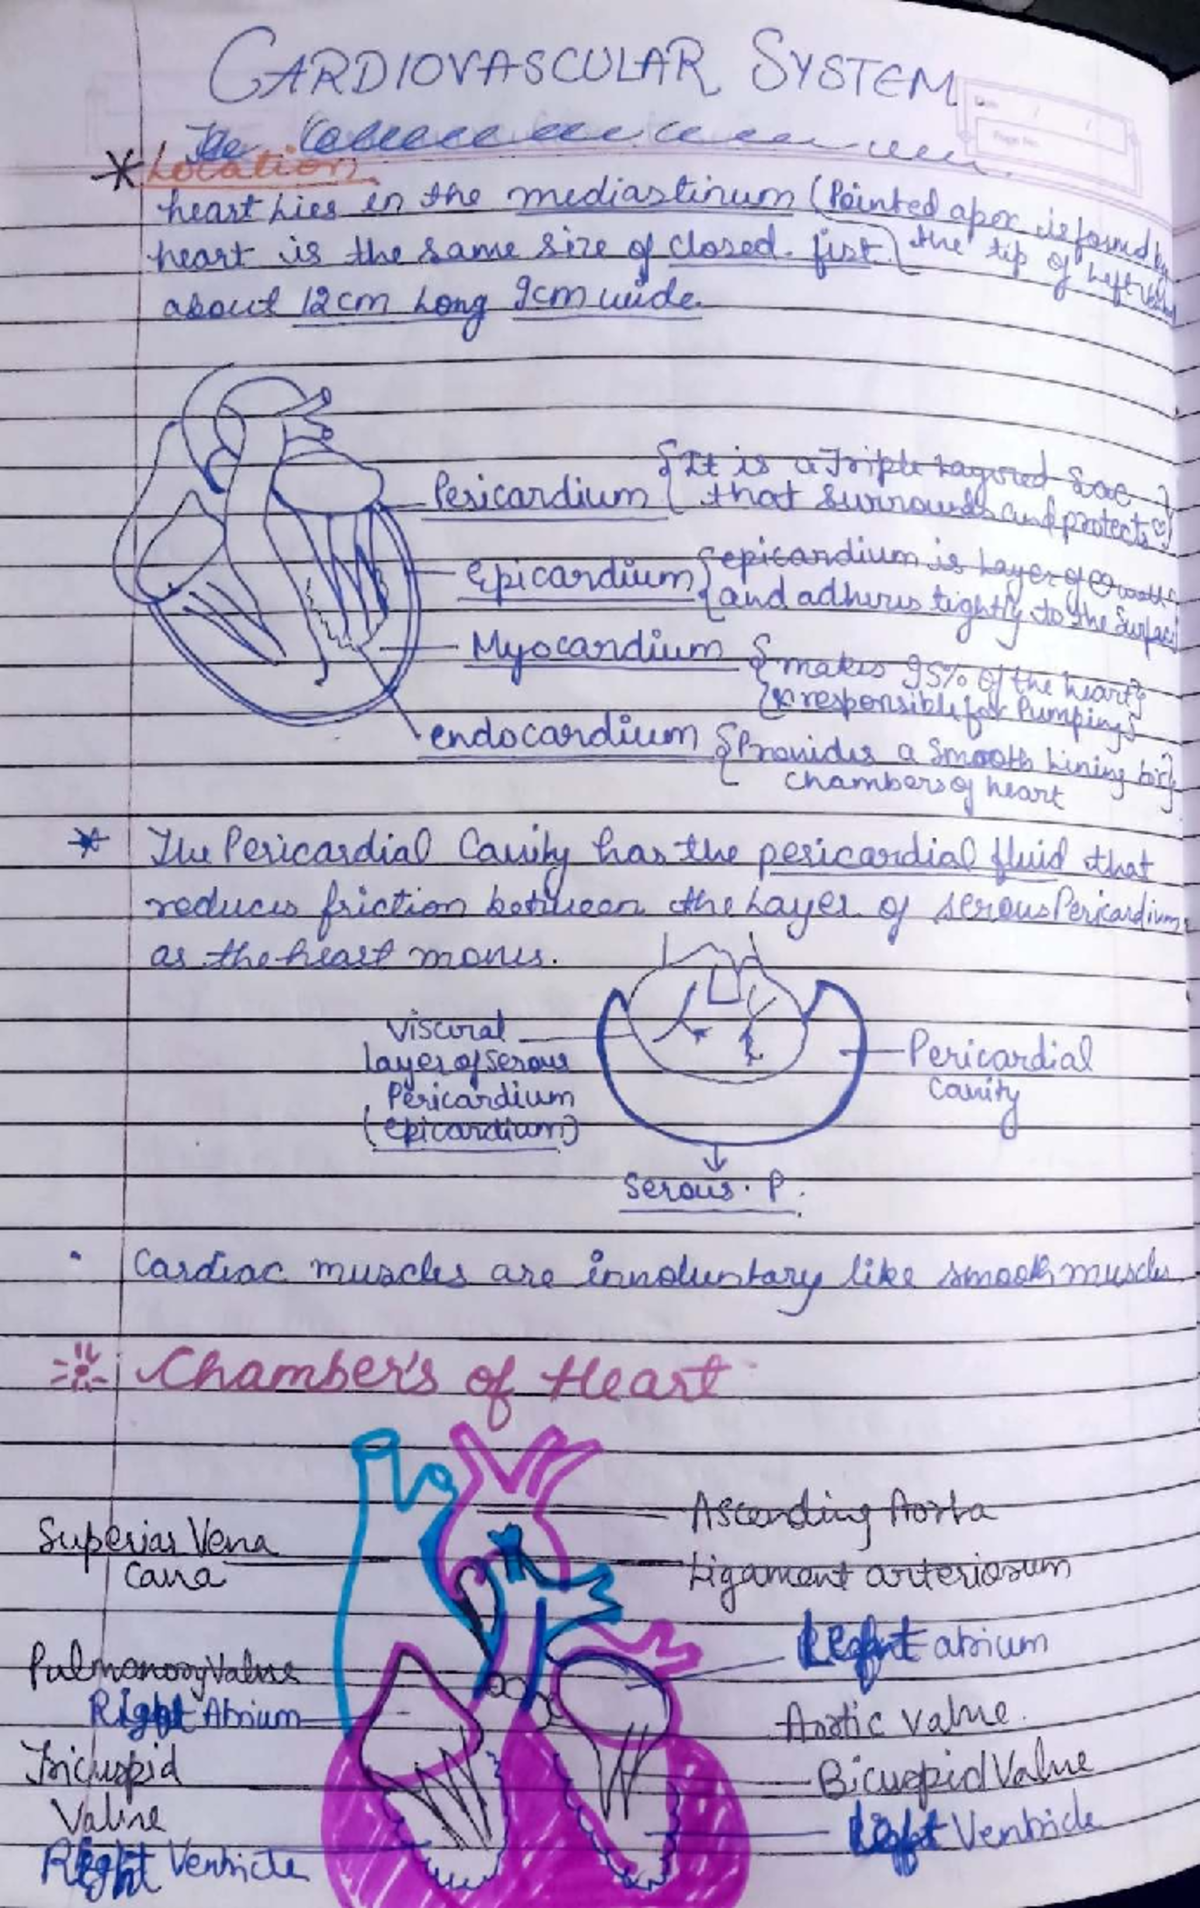 CARDIOVASCULAR SYSTEM
The
* Location
heart Lies in the mediastinum (Pointed apex is found by
heart is the same size of closed fist) the tip of Left
about 12cm Long 9cm wide.
Pericardium {It is a Triple Layered Sac
that surrounds and protects
Epicardium {epicardium is Layer of
and adheres tightly to the Surface
Myocardium { makes 95% of the heart}
{& responsible for Pumping}
endocardium {Provides a Smooth Lining for
chambers of heart
* The Pericardial Cavity has the pericardial fluid that
reduces friction between the Layer of serous Pericardium
as the heart moves.
Visceral
layer of Serous
Pericardium
(epicardium)
Pericardial
Cavity
Serous. P.
Cardiac muscles are innoluntary like smooth muscles
Chamber's of Heart
Superior Vena
Cava
Pulmonary Valve
Right Atrium
Tricuspid
Valve
Right Ventricle
Ascending Aorta
Ligament arteriosum
Left atrium
Aortic valve.
Bicuspid Valve
Left Ventricle